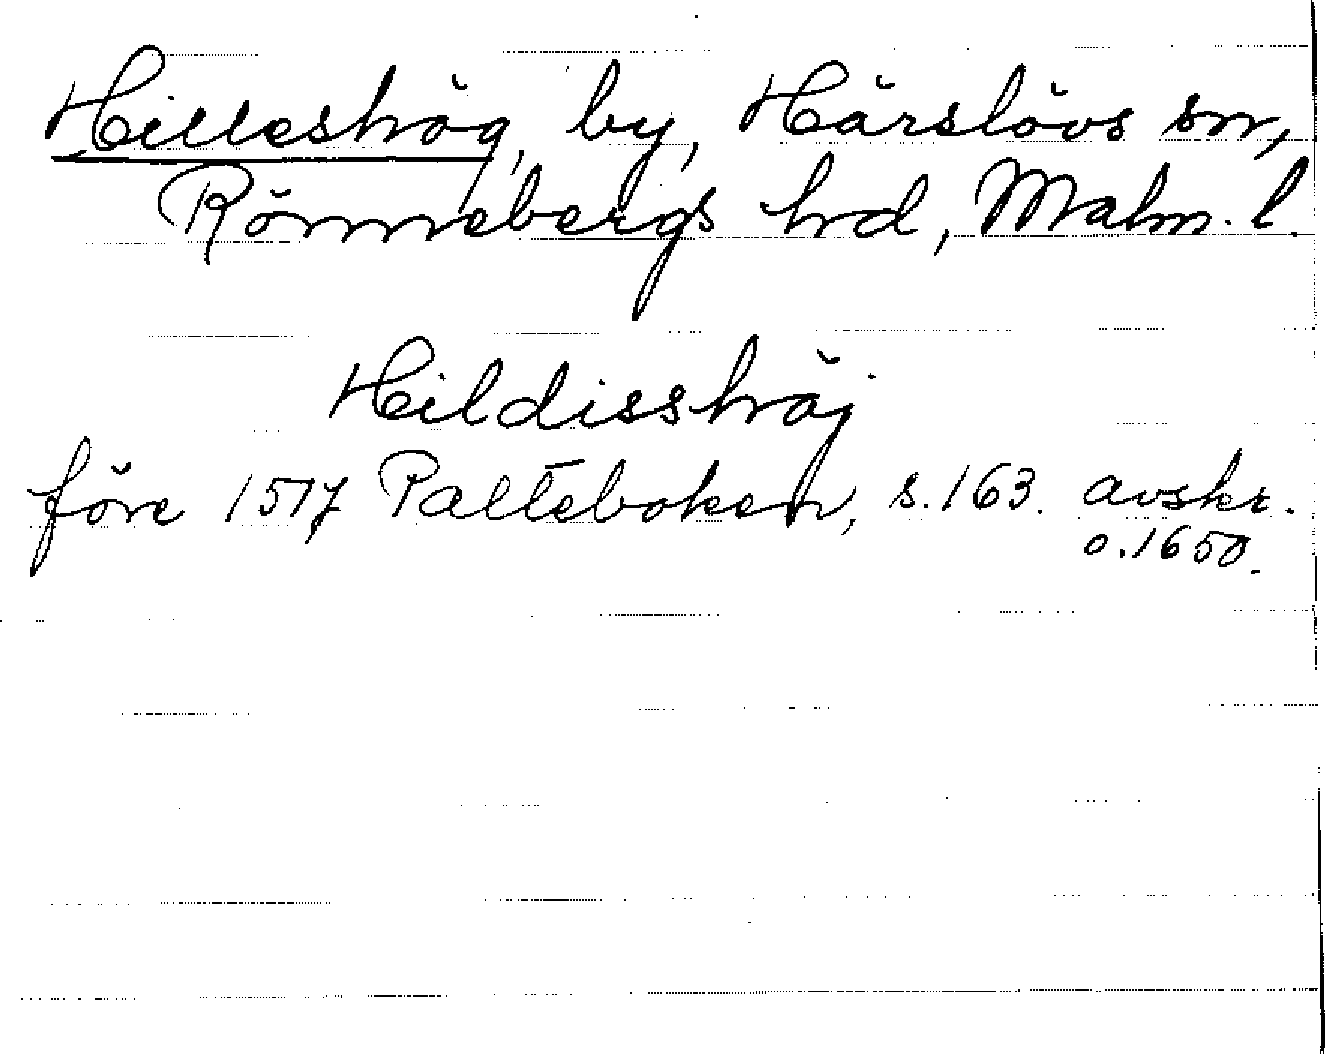 Hilleshög, by, Härslövs sn,
Rönnebergs hrd, Malm. l.
Hildisshöj
före 1517 Palteboken, s. 163. avskr.
o. 1650.